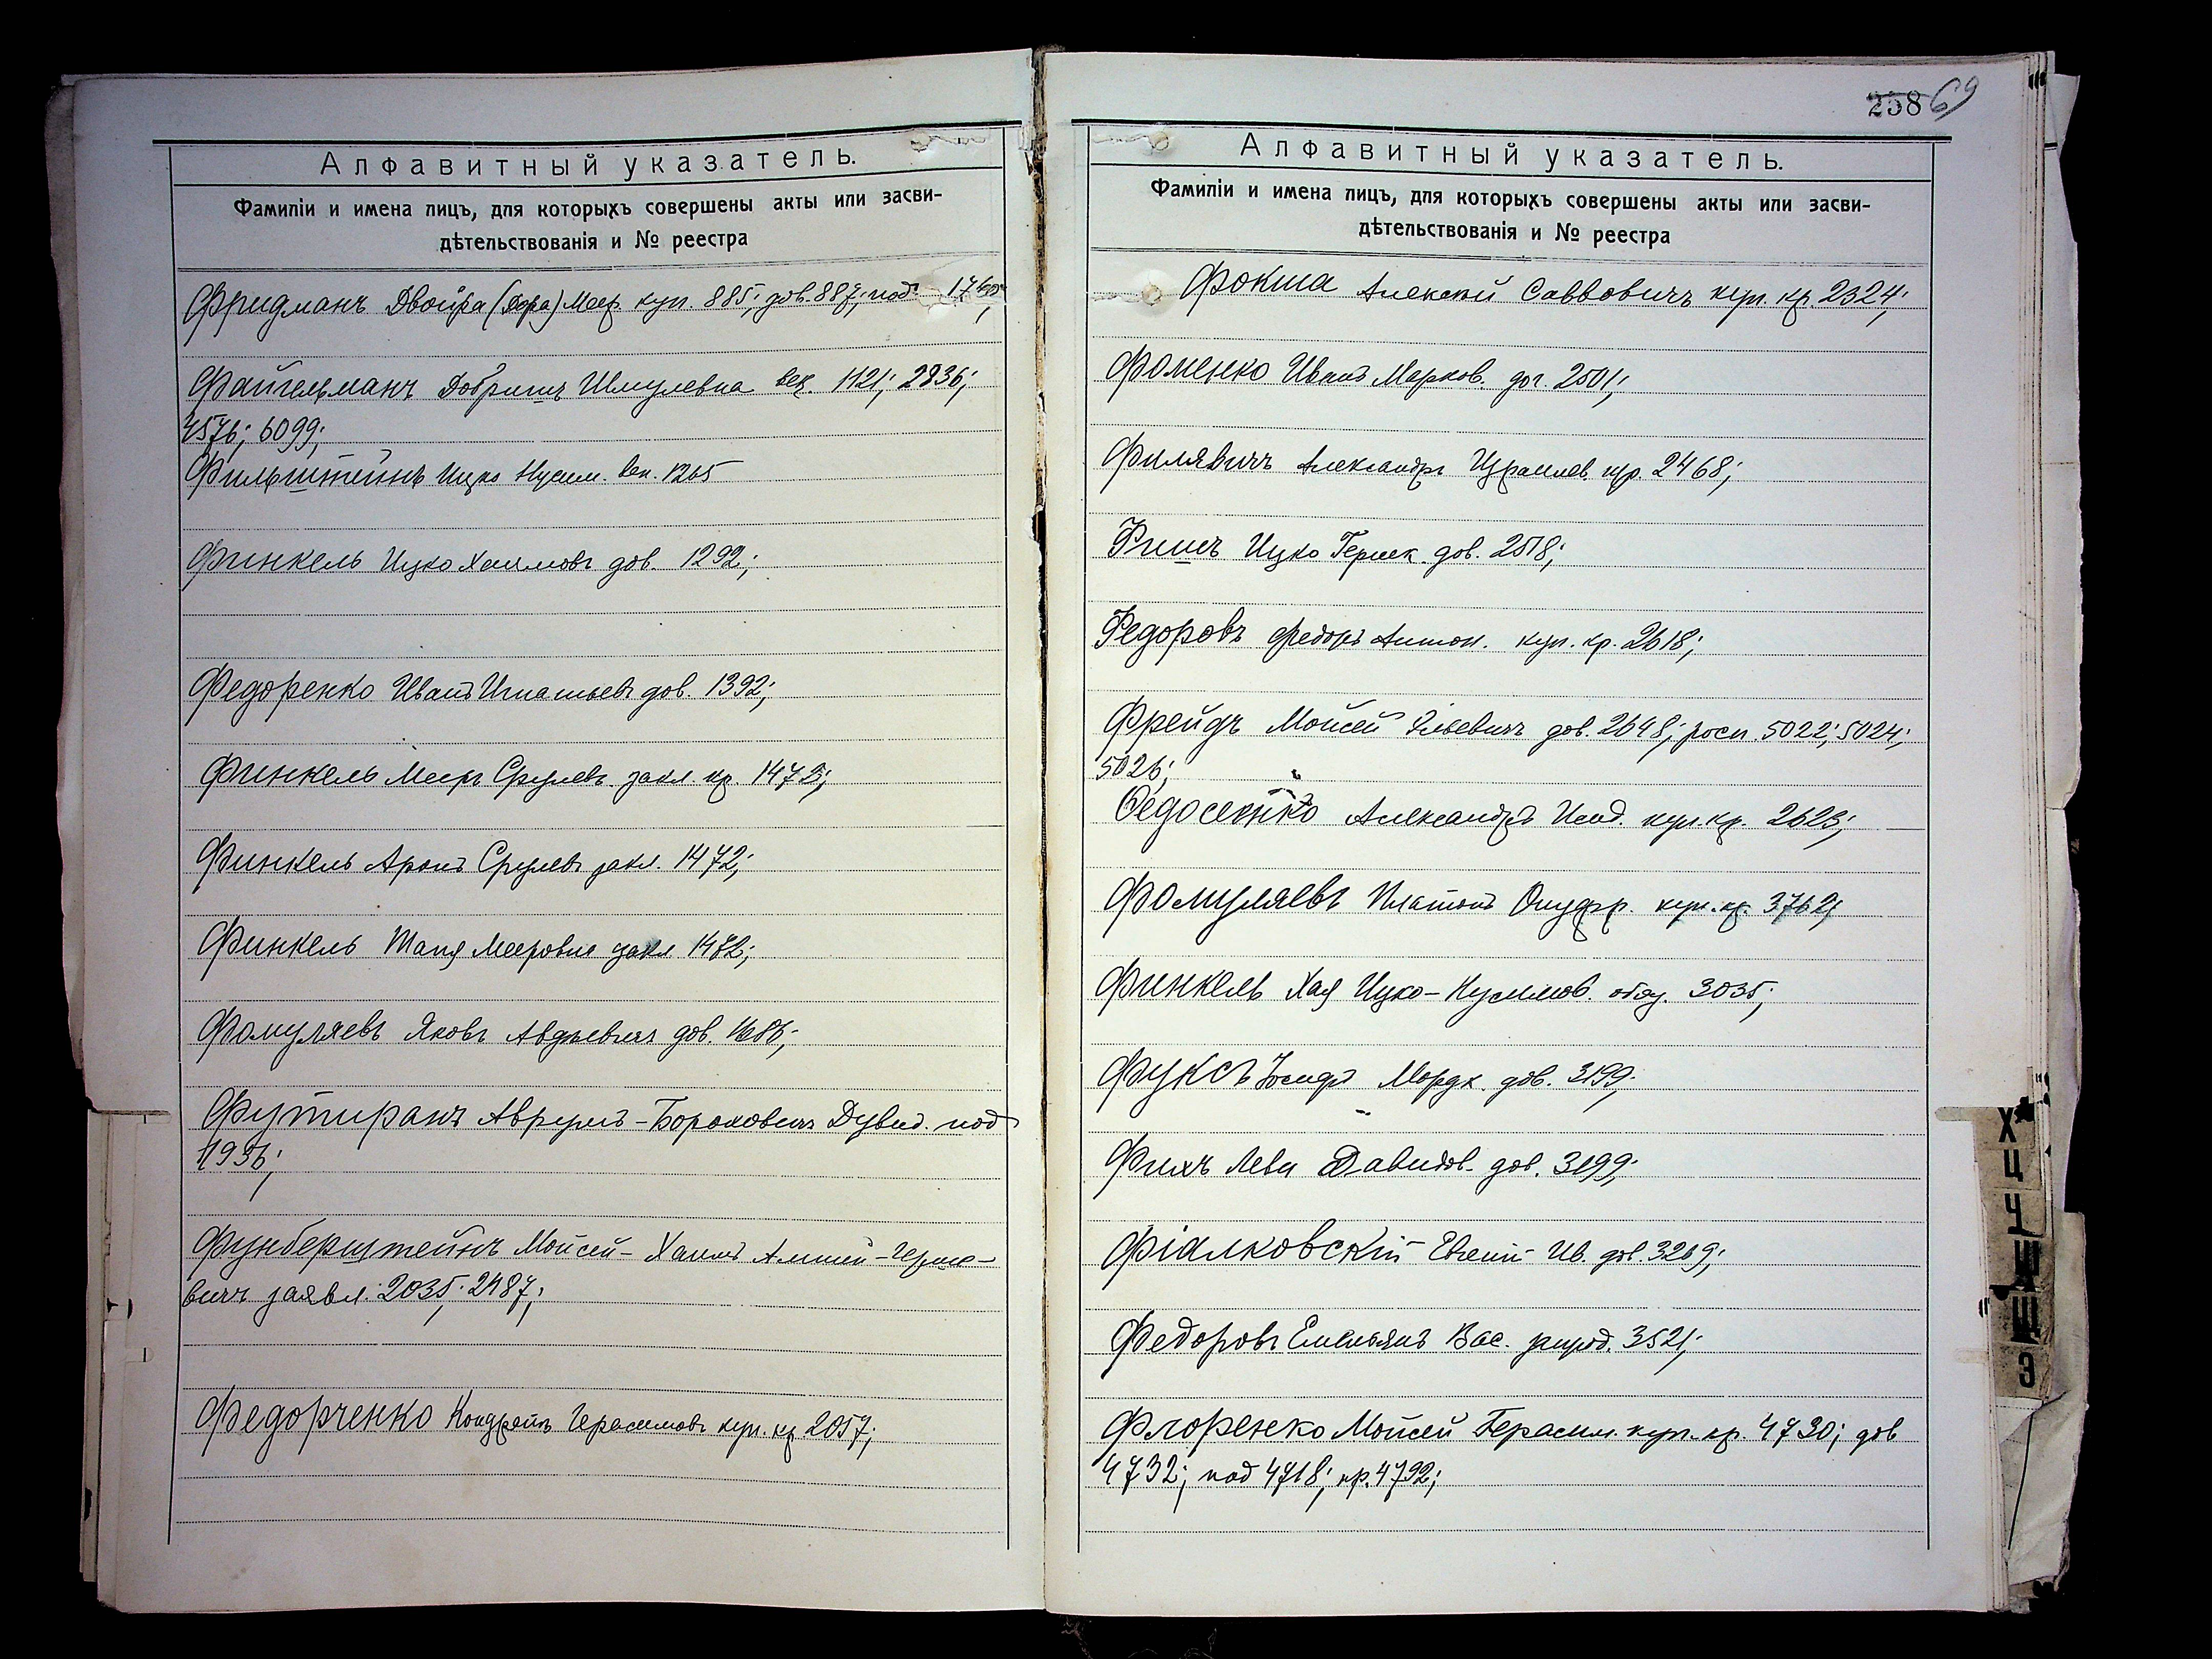 Алфавитный указатель.
Фамиліи и имена лицъ, для которыхъ совершены акты или засви-
дѣтельствованія и № реестра
Фридманъ Двойра (Дора) Меер. куп. 885; дов. 887; под.
Файгельманъ Добришъ Шмулевна век. 1121; 2836;
4576; 6099;
Фильштейнъ Ицко Нусим. век. 1265
Финкель Ицко Хаимовъ дов. 1292;
Федоренко Иванъ Игнатьевъ дов. 1392;
Финкель Мееръ Срулевъ закл. кр. 1472;
Финкель Аронъ Срулевъ закл. 1472;
Финкель Мееровна закл. 1472;
Фомуляевъ Яковъ Авдѣевичъ дов. 1686;
Футиранъ Аврумъ-Бороховичъ Дувид. под
1936;
Фунберштейнъ Мойсей-Хаимъ
вичъ заявл. 2035; 2487;
Федорченко Кондратъ Герасимовъ куп. кр. 2057;
258 69
Алфавитный указатель.
Фамиліи и имена лицъ, для которыхъ совершены акты или засви-
дѣтельствованія и № реестра
Фокша Алексѣй Саввовичъ куп. кр. 2324;
Фоменко Иванъ Марков. дог. 2501;
Филявичъ Александръ Израилев. кр. 2468;
Фишъ Ицко Гершк. дов. 2518;
Федоровъ Федоръ Антон. куп. кр. 2618;
Фрейдъ Мойсей Эльевичъ дов. 2648; росп. 5022; 5024;
5026;
Федосенко Александръ куп. кр. 2623;
Фомуляевъ Платонъ Онуфр. куп. кр. 3762;
Финкель Хая Ицко-Нусимов. обяз. 3035;
Фуксъ Іосифъ Мордх. дов. 3199;
Фихъ Лева Давидов. дов. 3199;
Фіалковскій Евгеній Ив. дов. 3269;
Федоровъ Емельянъ Вас. 3521;
Флоренко Мойсей Герасим. куп. кр. 4730; дов
4732; под 4718; кр. 4792;
Х
Ц
Ч
Ш
Щ
Э